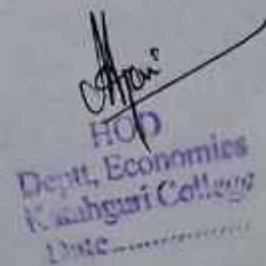 HOD
Deptt, Economics
College
Date..................